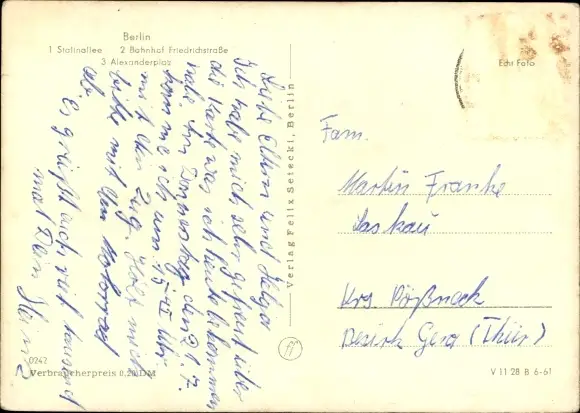 Berlin
1 Stalinallee 2 Bahnhof Friedrichstraße
3 Alexanderplatz
Echt Foto
Liebe Eltern und Helga
Ich habe mich sehr gefreut über
die Karte was ich heute bekommen
habe. Am Donnerstag den 21. 7.
komme ich um 15 45 Uhr
mit den Zug. Holt mich
bitte mit dem Motorrad
ab.
Es grüßt euch viel tausend
mal Den Heinz
Verlag Felix Setecki, Berlin
Fam.
Martin Franke
Laskau
Krs Pößneck
Bezirk Gera (Thür)
0242
Verbraucherpreis 0,20 DM
V 11 28 B 6-61